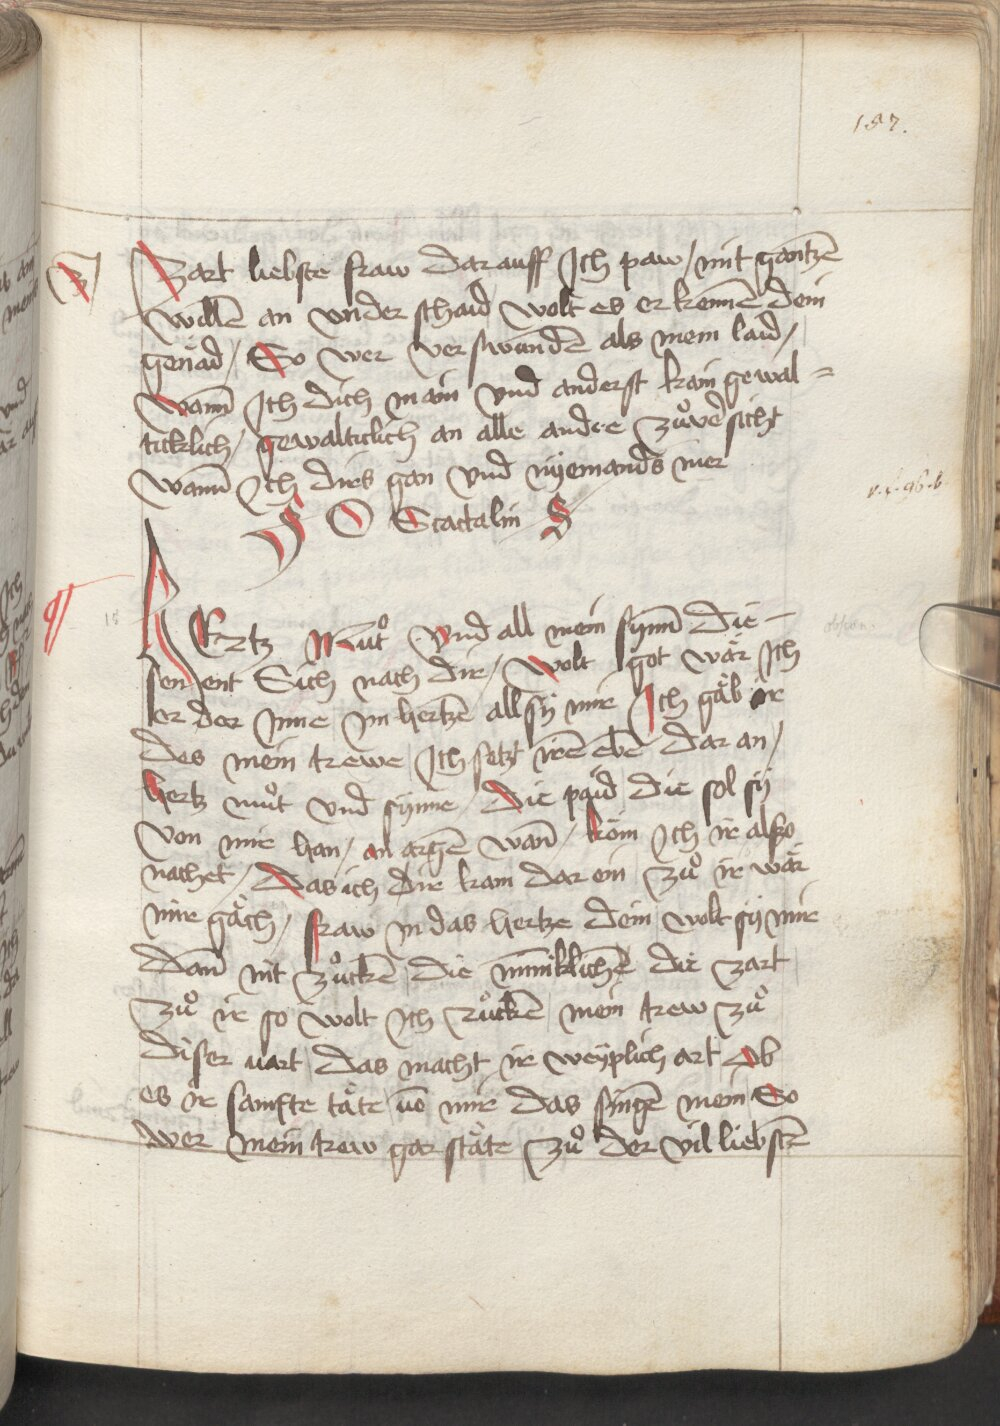 187.
Z Zart liebste fraw dar auff Ich paw / mit gantzē
willē an vnder schaid wolt es er kennē dein
genäd / So wer ver swundē als mein laid /
wann Ich dich main vnd anderst kain gewal =
ticklich / gewalticlich an alle andre zův͂sicht
wann Ich dirs gan vnd nÿemands mer
S O Scactalin S
HErtz Můt vnd all mein synn die
senent Sich nach dir / wolt got wär Ich
er der Inne im hertzē all sÿ mir Ich gäb ir
des mein trewe Ich setzt irē ebē dar an /
hertz můt vnd synne / Die paid die sol sÿ
von mir han / an argē wan̄ / köm Ich ir alszo
nachet / Das ich dir kam dar ein zů ir wär
mir gäch / fraw in das hertze dein wolt sÿ mir
dan̄ nit zůckē die miniklichē die zart
zů ir so wolt Ich růckē mein trew zů
diser uart das macht ir weÿplich art Ob
es ir samfte täte uō mir das singē mein So
wer mein trew gar stäte zů der vil liebstē